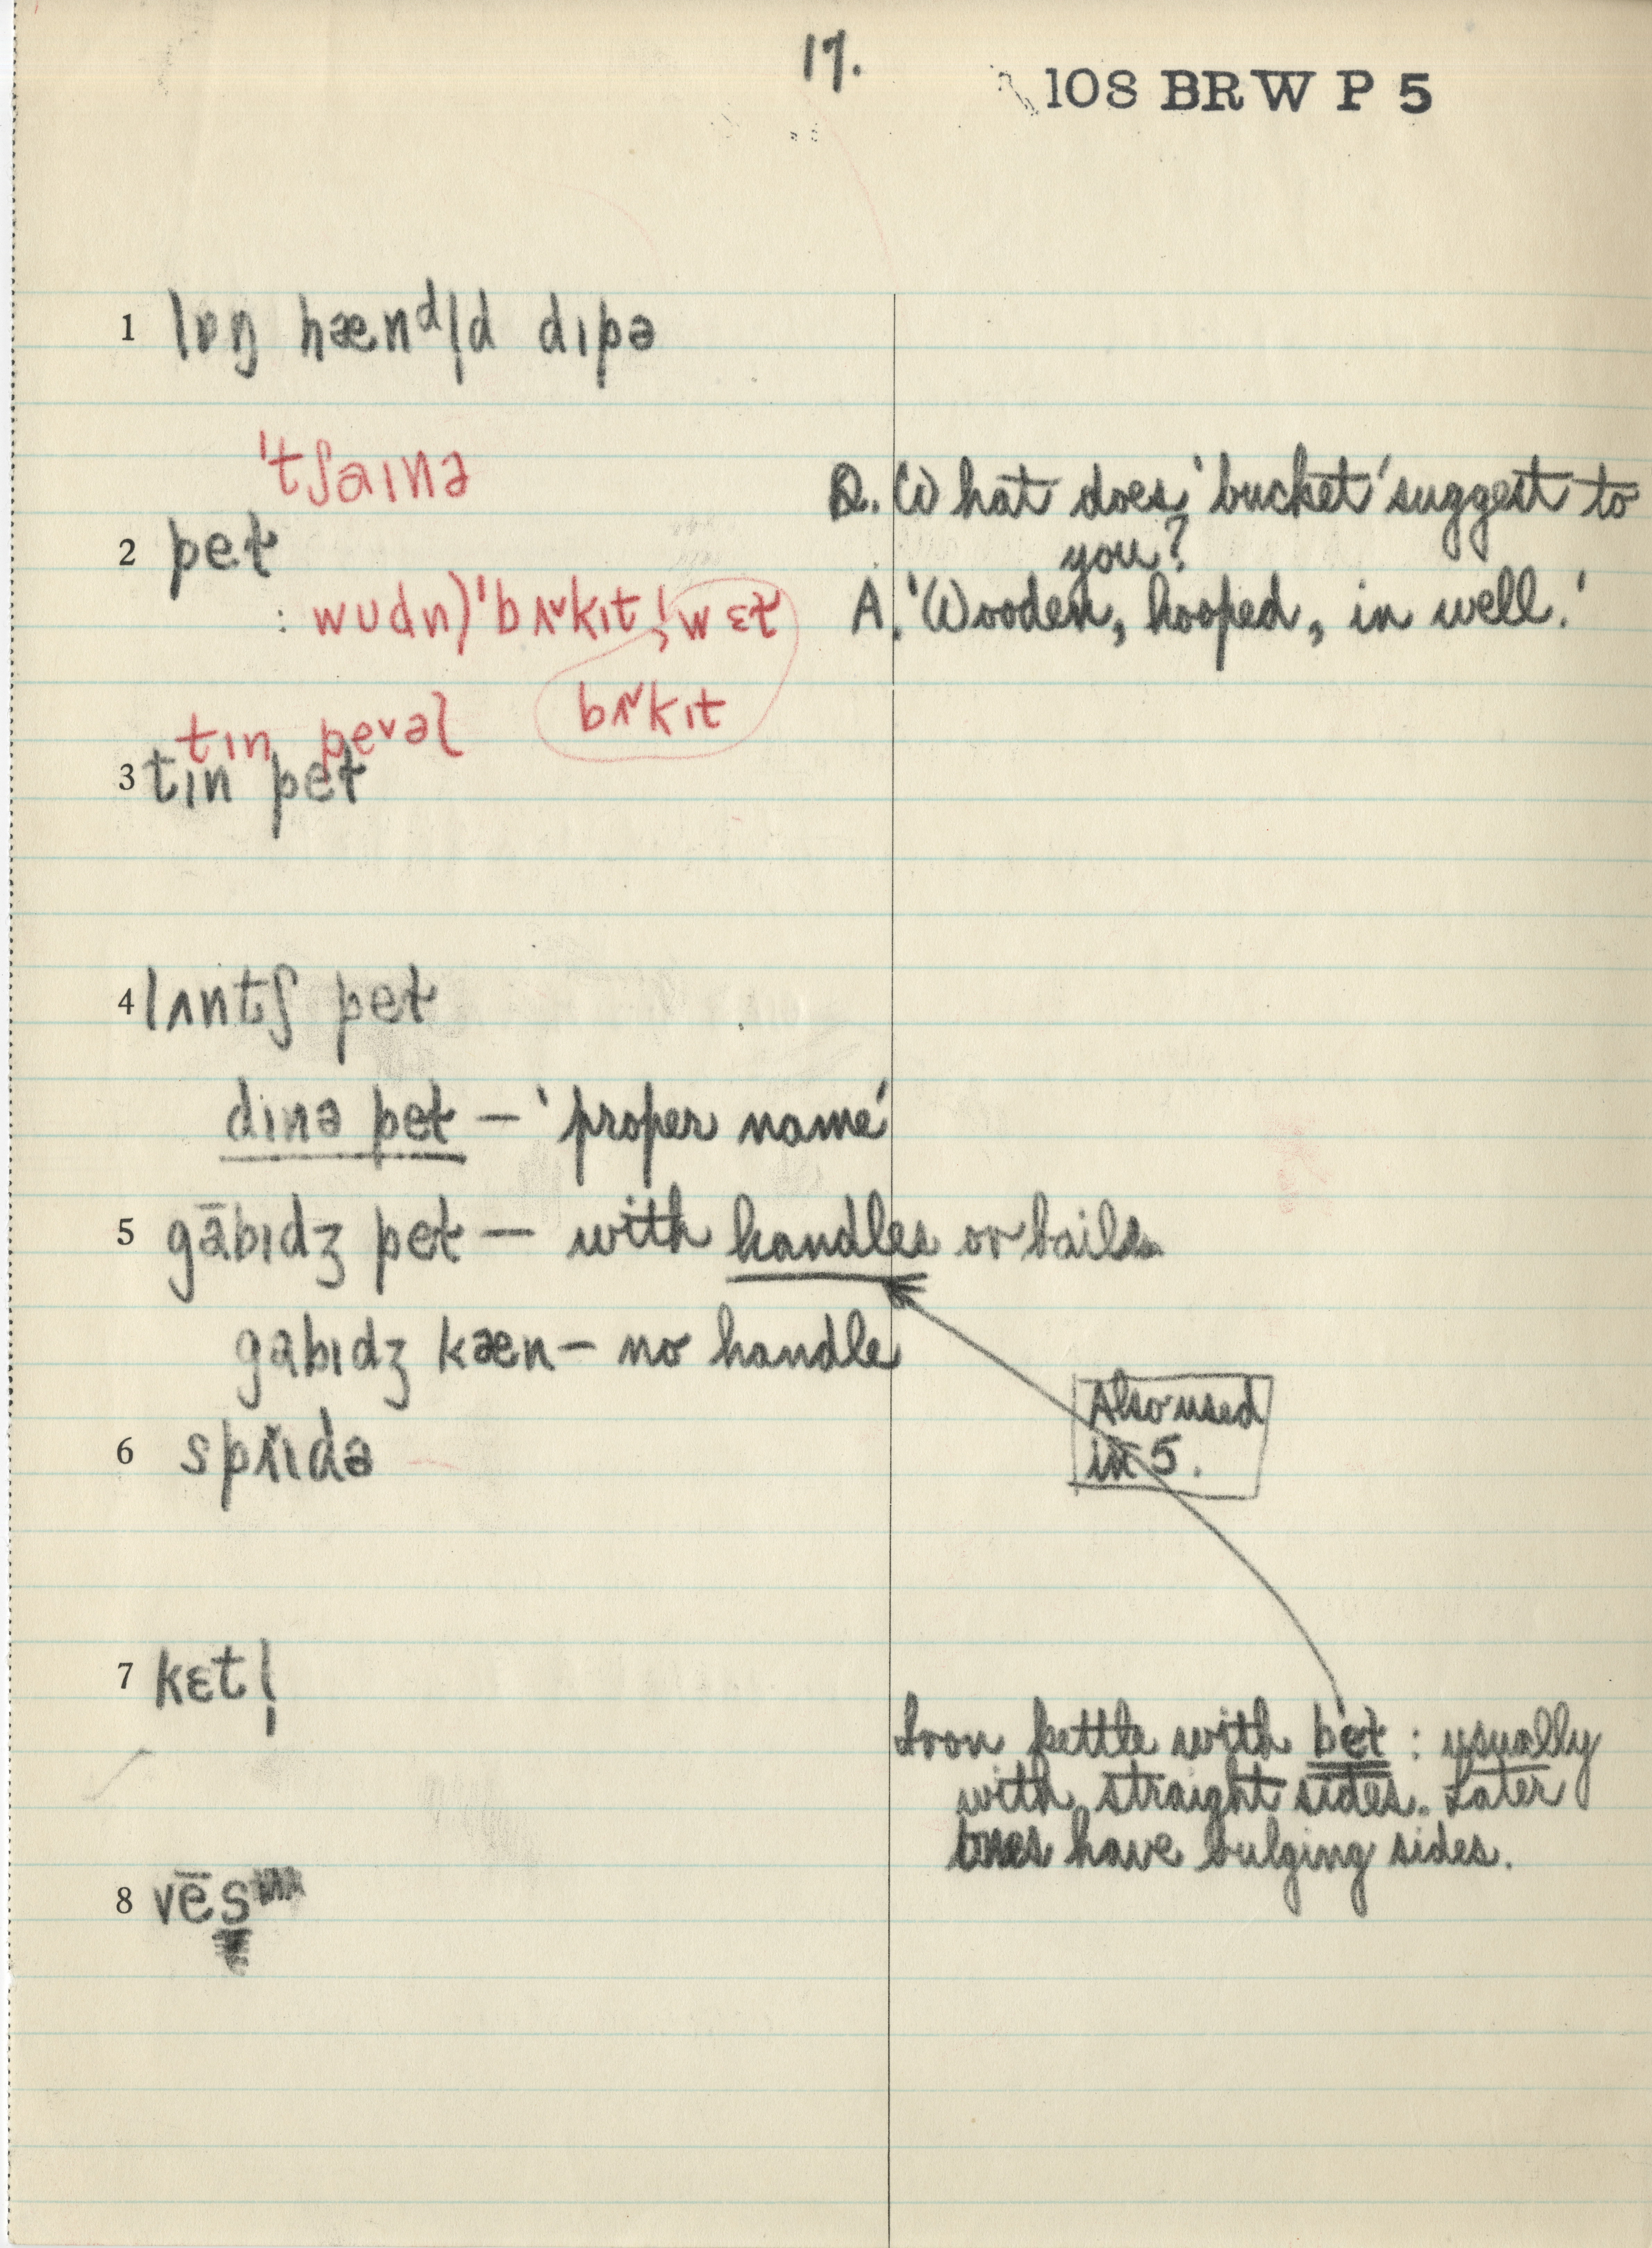 17.
108 BRW P 5
1 lɒŋ hænᵈl̩d dɪpə
'tʃaɪnə
Q. What does 'bucket' suggest to
2 peɫ
you?
: wʊdn)'bʌ˅kɪt; wɛɫ
A. 'Wooden, hooped, in well.'
bʌ˅kɪt
tɪn pe˅əl
3 tɪn peɫ
4 lʌntʃ peɫ
dɪnə peɫ – 'proper name'
5 gābɪdʒ peɫ – with handles or bails
gabɪdʒ kæn – no handle
Also used
in 5.
6 spɪ̆ɪdə
7 kɛtl̩
Iron kettle with beɫ : usually
with straight sides. Later
ones have bulging sides.
8 vēs